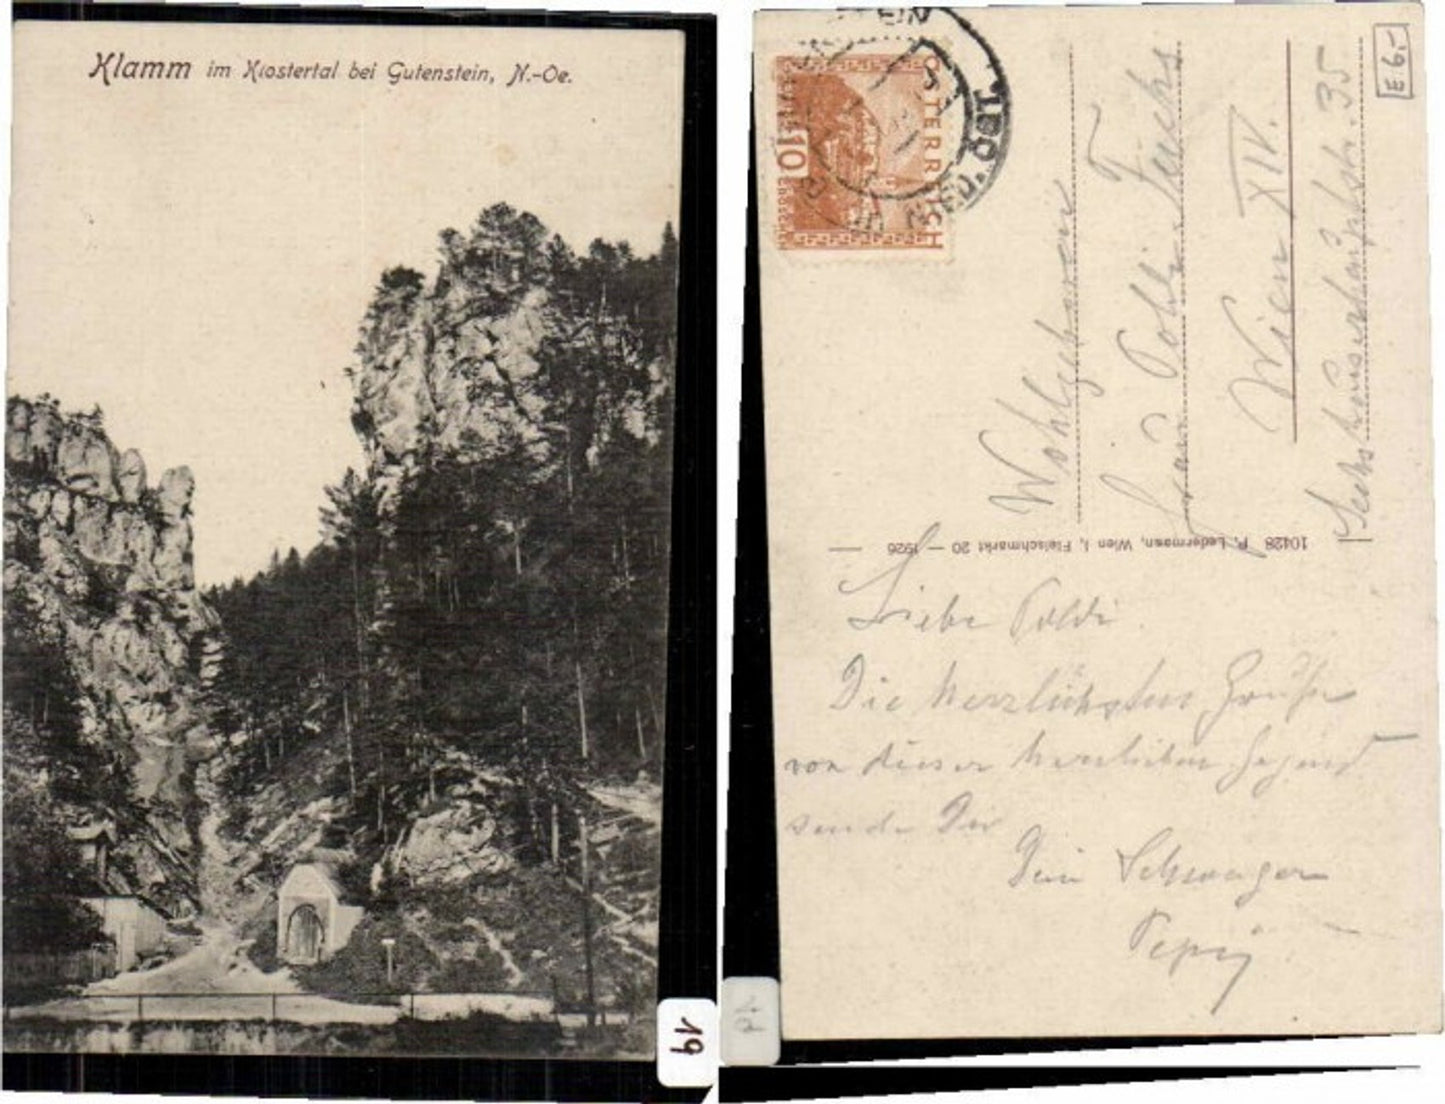 Klamm im Klostertal bei Gutenstein, N.-Oe.
19
ÖSTERREICH
10
GROSCHEN
TEIN
NIED. ÖST.
E 6.-
Wohlgeboren
Frau Poldi Fuchs
Wien XIV.
Sechshauserhauptstr. 35
10428 P. Ledermann, Wien I, Fleischmarkt 20 — 1926
Liebe Poldi
Die herzlichsten Grüße
von dieser herrlichen Gegend
sendet Dir
Dein Schwager
Pepi
19